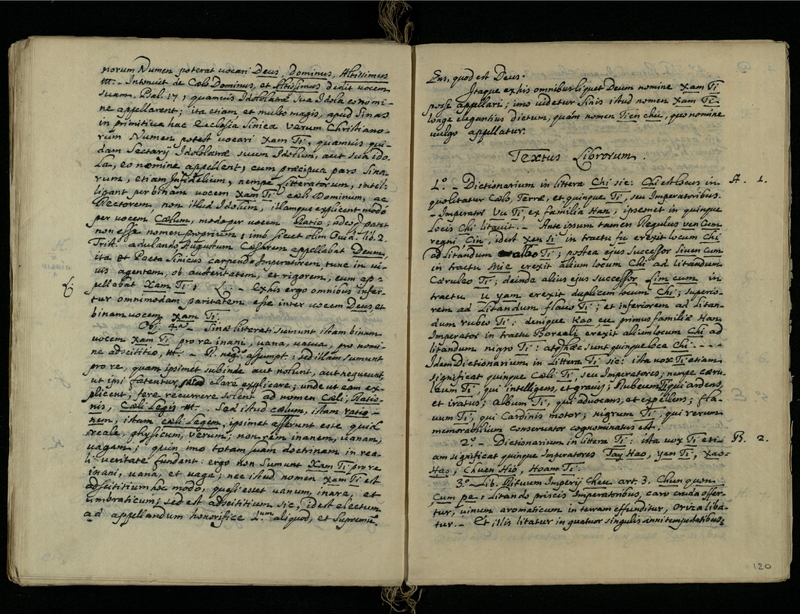 norum Numen poterat vocari Deus, Dominus, Altissimus
m. Intonuit de Cælo Dominus, et Altissimus dedit vocem
suam. Psal. 17; quamvis Idololatræ sua Idola eo nomi-
ne appellarent; ita etiam et multo magis, apud Sinas
in primitiva hac Ecclesia Sinica verum Christiano-
rum Numen potest vocari Xam Ti, quamvis qui-
dam Sectarij Idololatræ suum Idolum, aut sua Ido-
la, eo nomine appellent; cum præcipua pars Sina-
rum, etiam Infidelium, nempe Litteratorum, intelli-
ligant per binam vocem Xam Ti cæli Dominum, ac
Rectorem non illud Idolum, illamque explicent modo
per vocem Cælum, modo per vocem Ratio; adeoque patet
non esse nomen proprium; imo sicut olim Ouid. lib. 2.
Trist. adulando Augustum Cæsarem appellabat Deum,
ita et Poeta Sinicus carpendo Imperatorem tunc in vi-
vis agentem, ob austeritatem, et rigorem, eum ap-
pellabat Xam Ti; Ex his ergo omnibus infer-
tur omnimodam paritatem esse inter vocem Deus et
binam vocem Xam Ti.
Ob. 4º Sinæ literati sumunt istam binam
vocem Xam Ti pro re inani, vana, vacua, pro nomi-
ne adscititio, m. R. neg. assumpt; sed illam sumunt
pro re, quam ipsimet subinde aut nolunt, aut nequeunt,
ut ipsi fatentur, clare explicare; unde ut eam ex-
plicent, fere recurrere solent ad nomen Cæli, Ratio-
nis, Cæli Legis m. Sed istud cælum, istam ratio-
nem, istam cæli Legem, ipsimet asserunt esse quid
reale, physicum, verum, non rem inanem, vanam,
vagam; quin imo totam suam doctrinam in rea-
li veritate fundent; ergo non sumunt Xam Ti pro re
inani, vana, et vaga; nec istud nomen Xam Ti est
adscititium hoc modo, quasi esset vanum, inane, et
umbraticum; sed est adscititium sic, id est electum
ad appellandum honorifice 1.um aliquod, et Supremum
Ens, quod est Deus.
Itaque ex his omnibus liquet Deum nomine Xam Ti
posse appellari; imo videtur Sinis istud nomen Xam Ti
longe elegantius dictum, quam nomen Tien chu, quo nomine
vulgo appellatur.
Textus Librorum.
1.º Dictionarium in littera Chi sic: Chi est locus in A. 1.
quo litatur Cælo, Terræ, et quinque Ti, seu Imperatoribus.
Imperator Vu Ti ex familia Han, ipsemet in quinque
locis Chi litavit. Ante ipsum tamen Regulus ven Cum
regni Cin, idest xen si in tractu fu erexit locum Chi
ad Litandum albo Ti; postea ejus successor siuen Cum
in tractu mie erexit alium locum Chi ad litandum
Cæruleo Ti; deinde alius ejus successor Lim cum in
tractu u yam erexit duplicem locum Chi; superio-
rem ad Litandum flavo Ti; et inferiorem ad Litan-
dum rubeo Ti: denique Kao cu primus familiæ Han
Imperator in tractu Boreali erexit alium locum Chi ad
litandum nigro Ti: atque hæc sunt quinque loca Chi.
Idem Dictionarium in Littera Ti sic: ista vox Ti etiam
significat quinque Cæli Ti seu Imperatores; nempe cæru-
leum Ti, qui intelligens, et gravis; Rubeum Ti, qui ardens,
et iratus; Album Ti, qui advocans, et expellens; fla-
vum Ti, qui Cardinis motor; nigrum Ti, qui rerum
memorabilium conservator cognominatus est.
2.º Dictionarium in littera Ti: ista vox Ti eti- B. 2.
am significat quinque Imperatores Tay Hao, yen Ti, xao
Hao, Chuen Hio, Hoam Ti.
3.º Lib. Rituum Imperij Cheu art. 3. Chun quon
Cum pe, Litando priscis Imperatoribus, caro cruda offer-
tur, vinum aromaticum in terram effunditur, oryza liba-
tur. Et illis litatur in quatuor singulis anni tempestatibus,
120